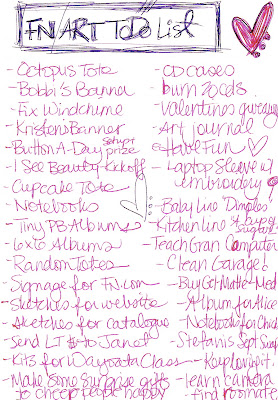 FN ART ToDo List
- Octopus Tote
- Bobbi's Banner
- Fix Windchime
- Kristen's Banner
- Button A-Day setup + prize
- I See Beauty Kickoff
- Cupcake Tote
- Notebooks
- Tiny PB Albums
- 6x6 Albums
- Random Totes
- Signage for FN.com
- Sketches for website
- Sketches for catalogue
- Send LT # to Janet
- Kits for Class
- Make some surprise gifts
to cheer people happy
- CD cases
- burn 20 cds
- Valentines giveaway
- Art journal
- Have Fun
- Laptop Sleeve w/
embroidery
- Baby Line Dimples
- Kitchen Line
- Teach Gran Computer
- Clean Garage!
- Buy Got Matte-Med
- Album for Alice
- Notebooks for
- Stefanis Sept
- Keep lovin it
- learn camera
- find roomate